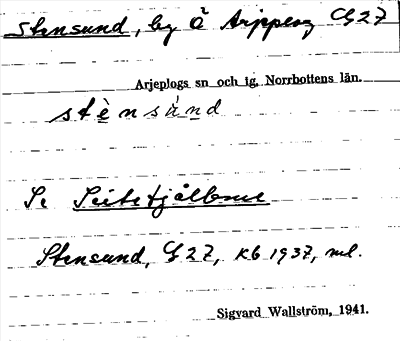 Stensund, by Å Arjeplog G 27
Arjeplogs sn och tg, Norrbottens län.
stènsùnd
Se Peitsfjällene
Stensund, G 27, Kb 1937, ml.
Sigvard Wallström, 1941.